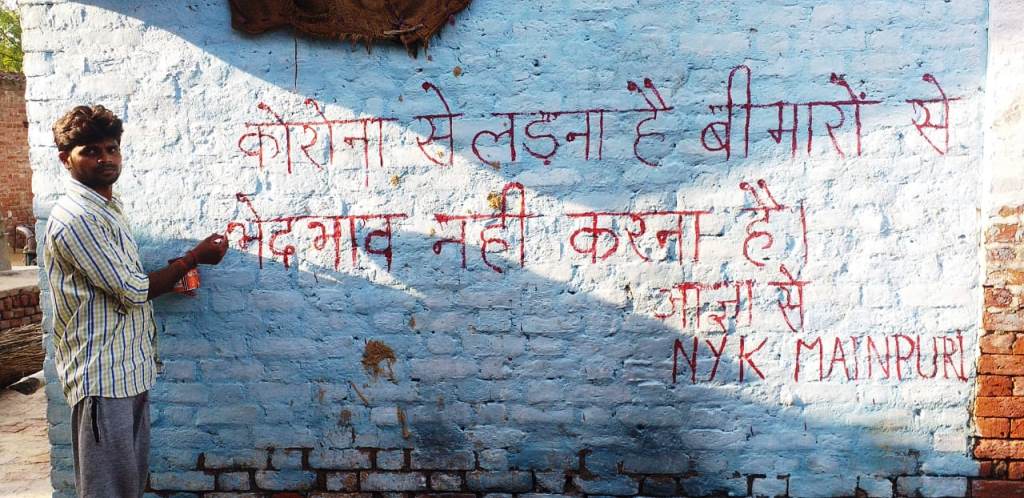 कोरोना से लड़ना है बीमारों से
भेदभाव नही करना है।
आज्ञा से
NYK MAINPURI